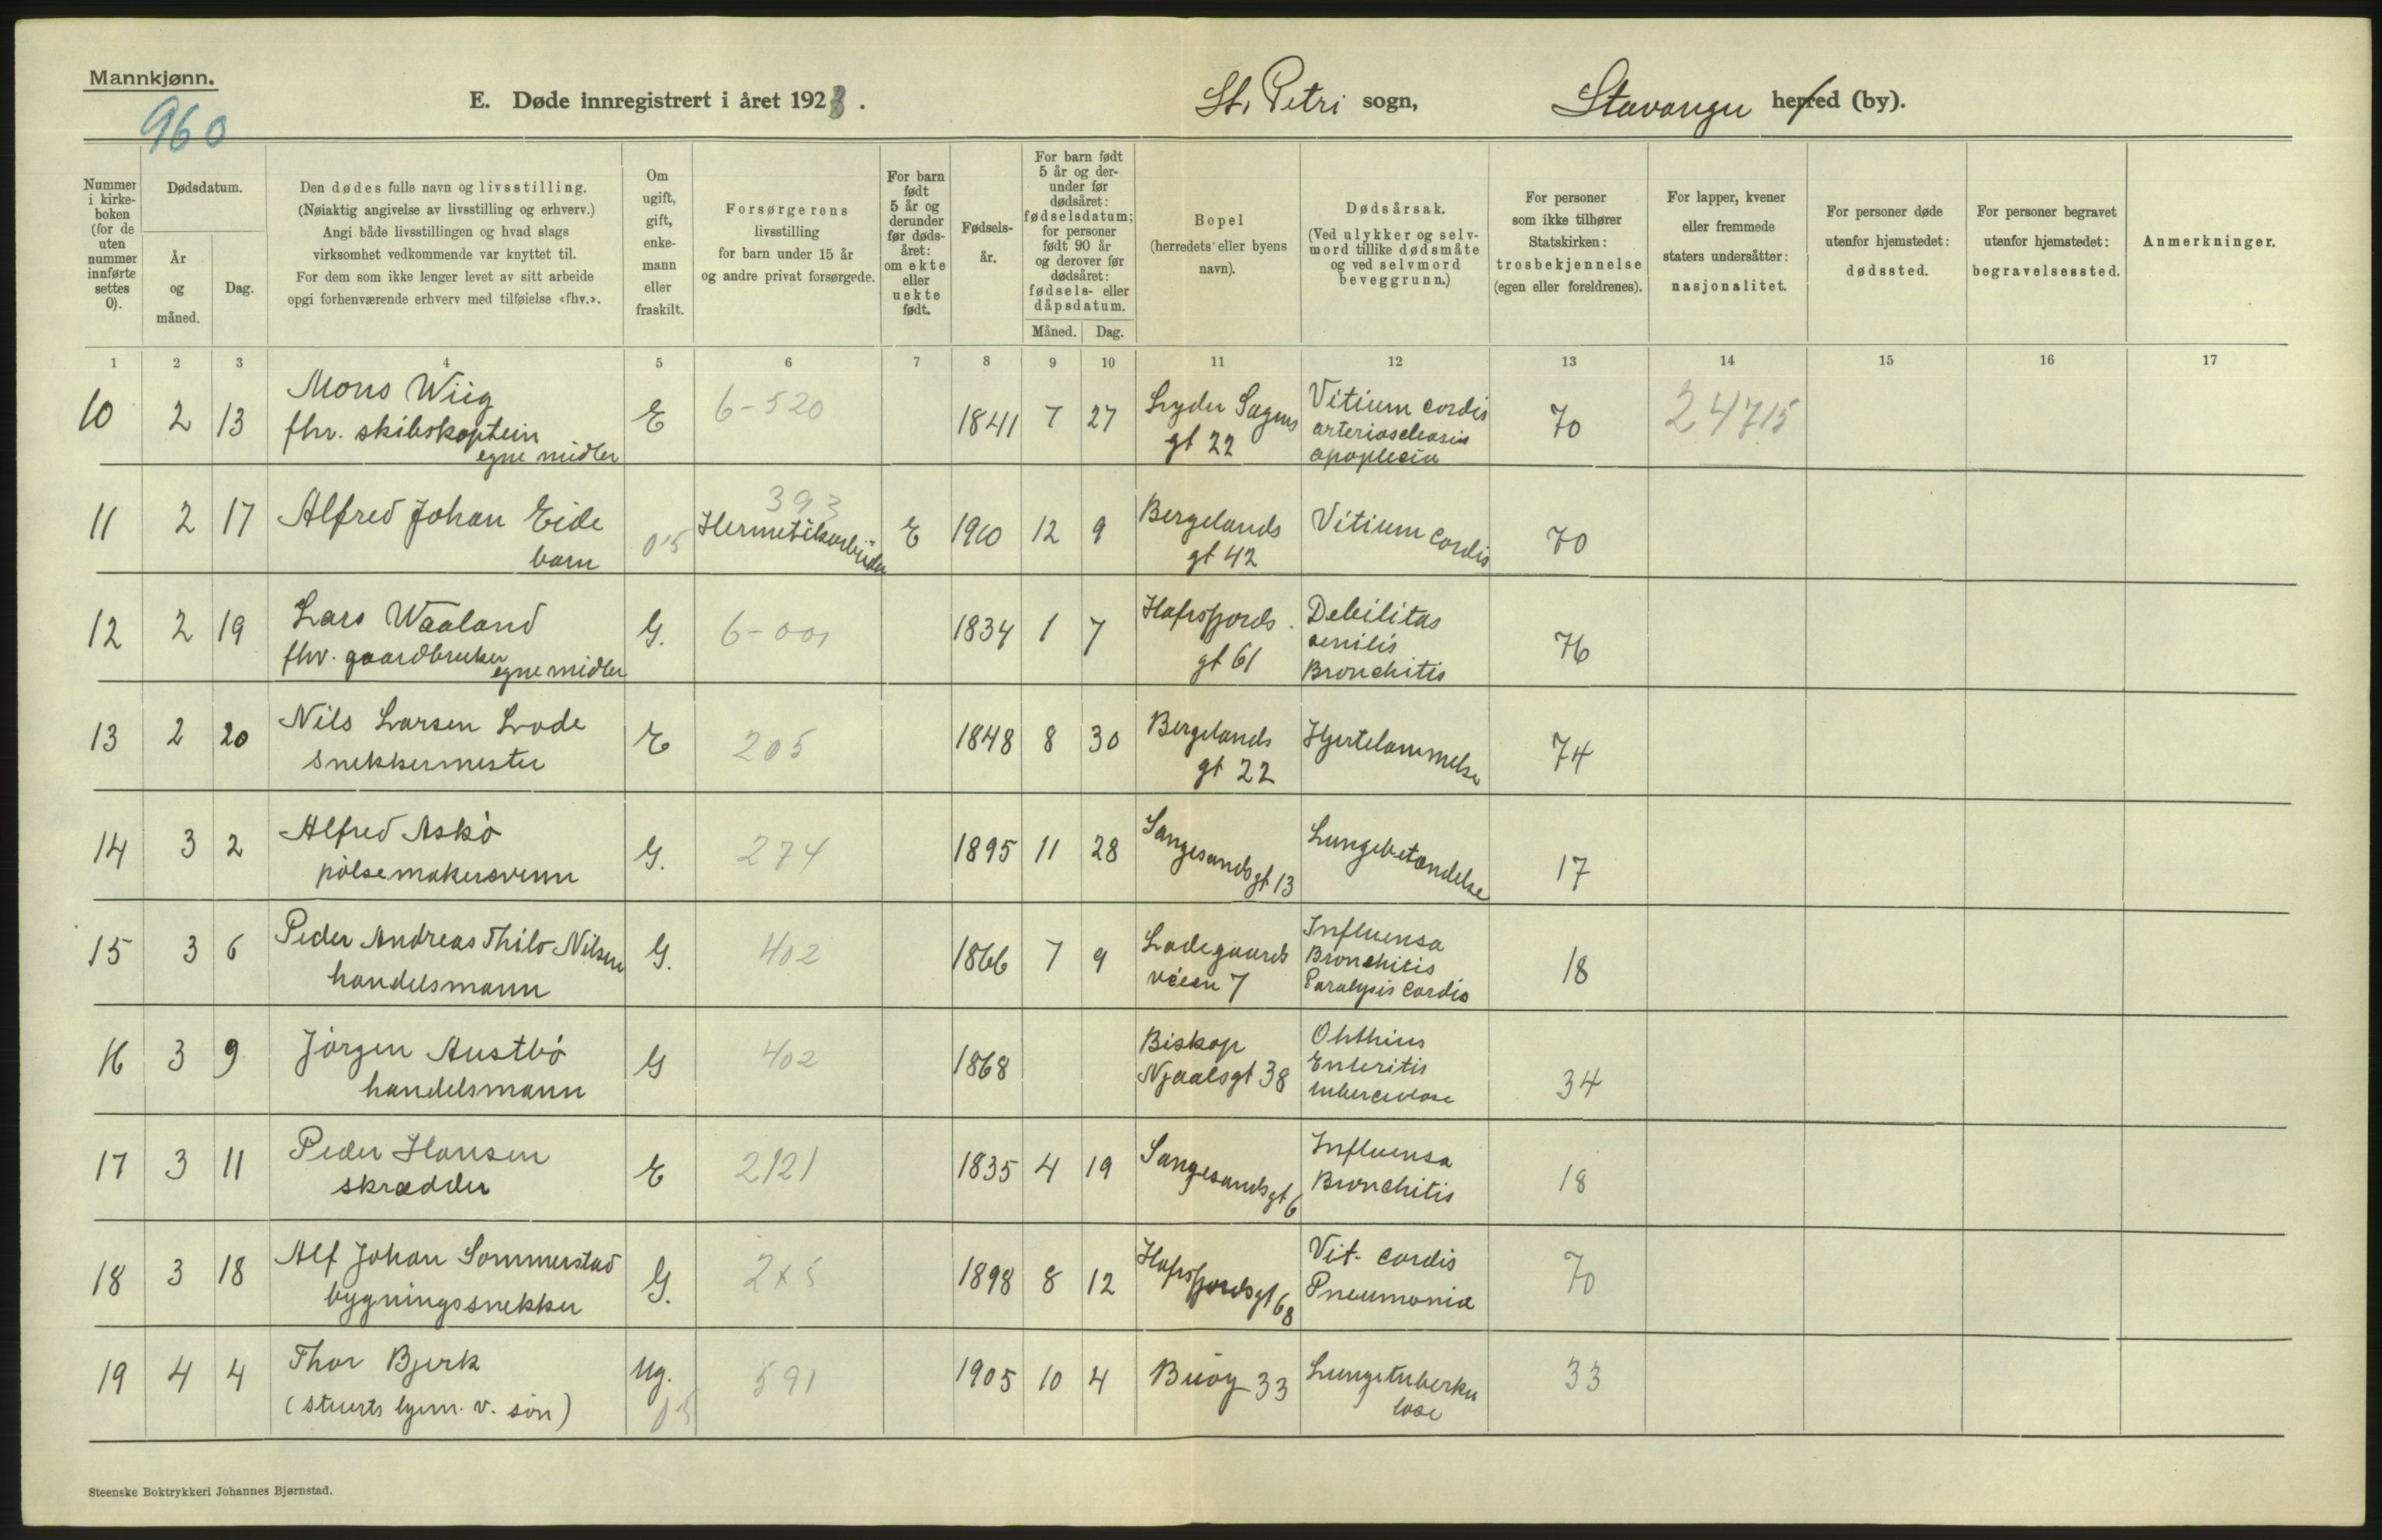 Mannkjønn.
960
E. Døde innregistrert i året 1923.
St. Petri sogn,
Stavanger herred (by).
Nummer i kirke- boken (for de uten nummer innførte settes 0).
Dødsdatum.
År og måned.
Dag.
Den dødes fulle navn og livsstilling.
(Nøiaktig angivelse av livsstilling og erhverv.)
Angi både livsstillingen og hvad slags
virksomhet vedkommende var knyttet til.
For dem som ikke lenger levet av sitt arbeide
opgi forhenværende erhverv med tilføielse «fhv.».
Om ugift, gift, enke- mann eller fraskilt.
Forsørgerens
livsstilling
for barn under 15 år
og andre privat forsørgede.
For barn født 5 år og derunder før døds- året: om ekte eller uekte født.
Fødsels- år.
For barn født 5 år og der- under før dødsåret: fødselsdatum; for personer født 90 år og derover før dødsåret: fødsels- eller dåpsdatum.
Måned. Dag.
Bopel
(herredets eller byens
navn).
Dødsårsak.
(Ved ulykker og selv-
mord tillike dødsmåte
og ved selvmord
beveggrunn.)
For personer
som ikke tilhører
Statskirken:
trosbekjennelse
(egen eller foreldrenes).
For lapper, kvener
eller fremmede
staters undersåtter:
nasjonalitet.
For personer døde
utenfor hjemstedet:
dødssted.
For personer begravet
utenfor hjemstedet:
begravelsessted.
Anmerkninger.
1 2 3 4 5 6 7 8 9 10 11 12 13 14 15 16 17
10 2 13 Mons Wiig
fhv. skibskaptein
egne midler
E 6-520 1841 7 27 Lyder Sagens
gt 22
Vitium cordis
arteriosclerosis
apoplexia
70 24715
11 2 17 Alfred Johan Eide
barn
015 393
Hermetikarbeider
E 1910 12 9 Bergelands
gt 42
Vitium cordis
70
12 2 19 Lars Waaland
fhv. gaardbruker
egne midler
G. 6-001 1834 1 7 Hafrsfjords
gt 61
Debilitas
senilis
Bronchitis
76
13 2 20 Nils Larsen Lode
snekkermester
E 205 1848 8 30 Bergelands
gt 22
Hjertelammelse
74
14 3 2 Alfred Askö
pölsemakersvenn
G. 274 1895 11 28 Langesandsgt 13
Lungebetændelse
17
15 3 6 Peder Andreas Thilo Nilsen
handelsmann
G. 402 1866 7 9 Ladegaards
veien 7
Influensa
Bronchitis
Paralysis cordis
18
16 3 9 Jörgen Austbö
handelsmann
G 402 1868 Biskop
Njaalsgt 38
Enteritis
34
17 3 11 Peder Hansen
skrædder
E 2121 1835 4 19 Langesandsgt 6
Influensa
Bronchitis
18
18 3 18 Alf Johan Sommerstad
bygningssnekker
G. 2x5 1898 8 12 Hafrsfjordsgt 68
Vit. cordis
Pneumonia
70
19 4 4 Thor Bjerk
(stuerts hjem. v. sön)
Ug.
05
591 1905 10 4 Buöy 33
Lungetuberku
lose
33
Steenske Boktrykkeri Johannes Bjørnstad.